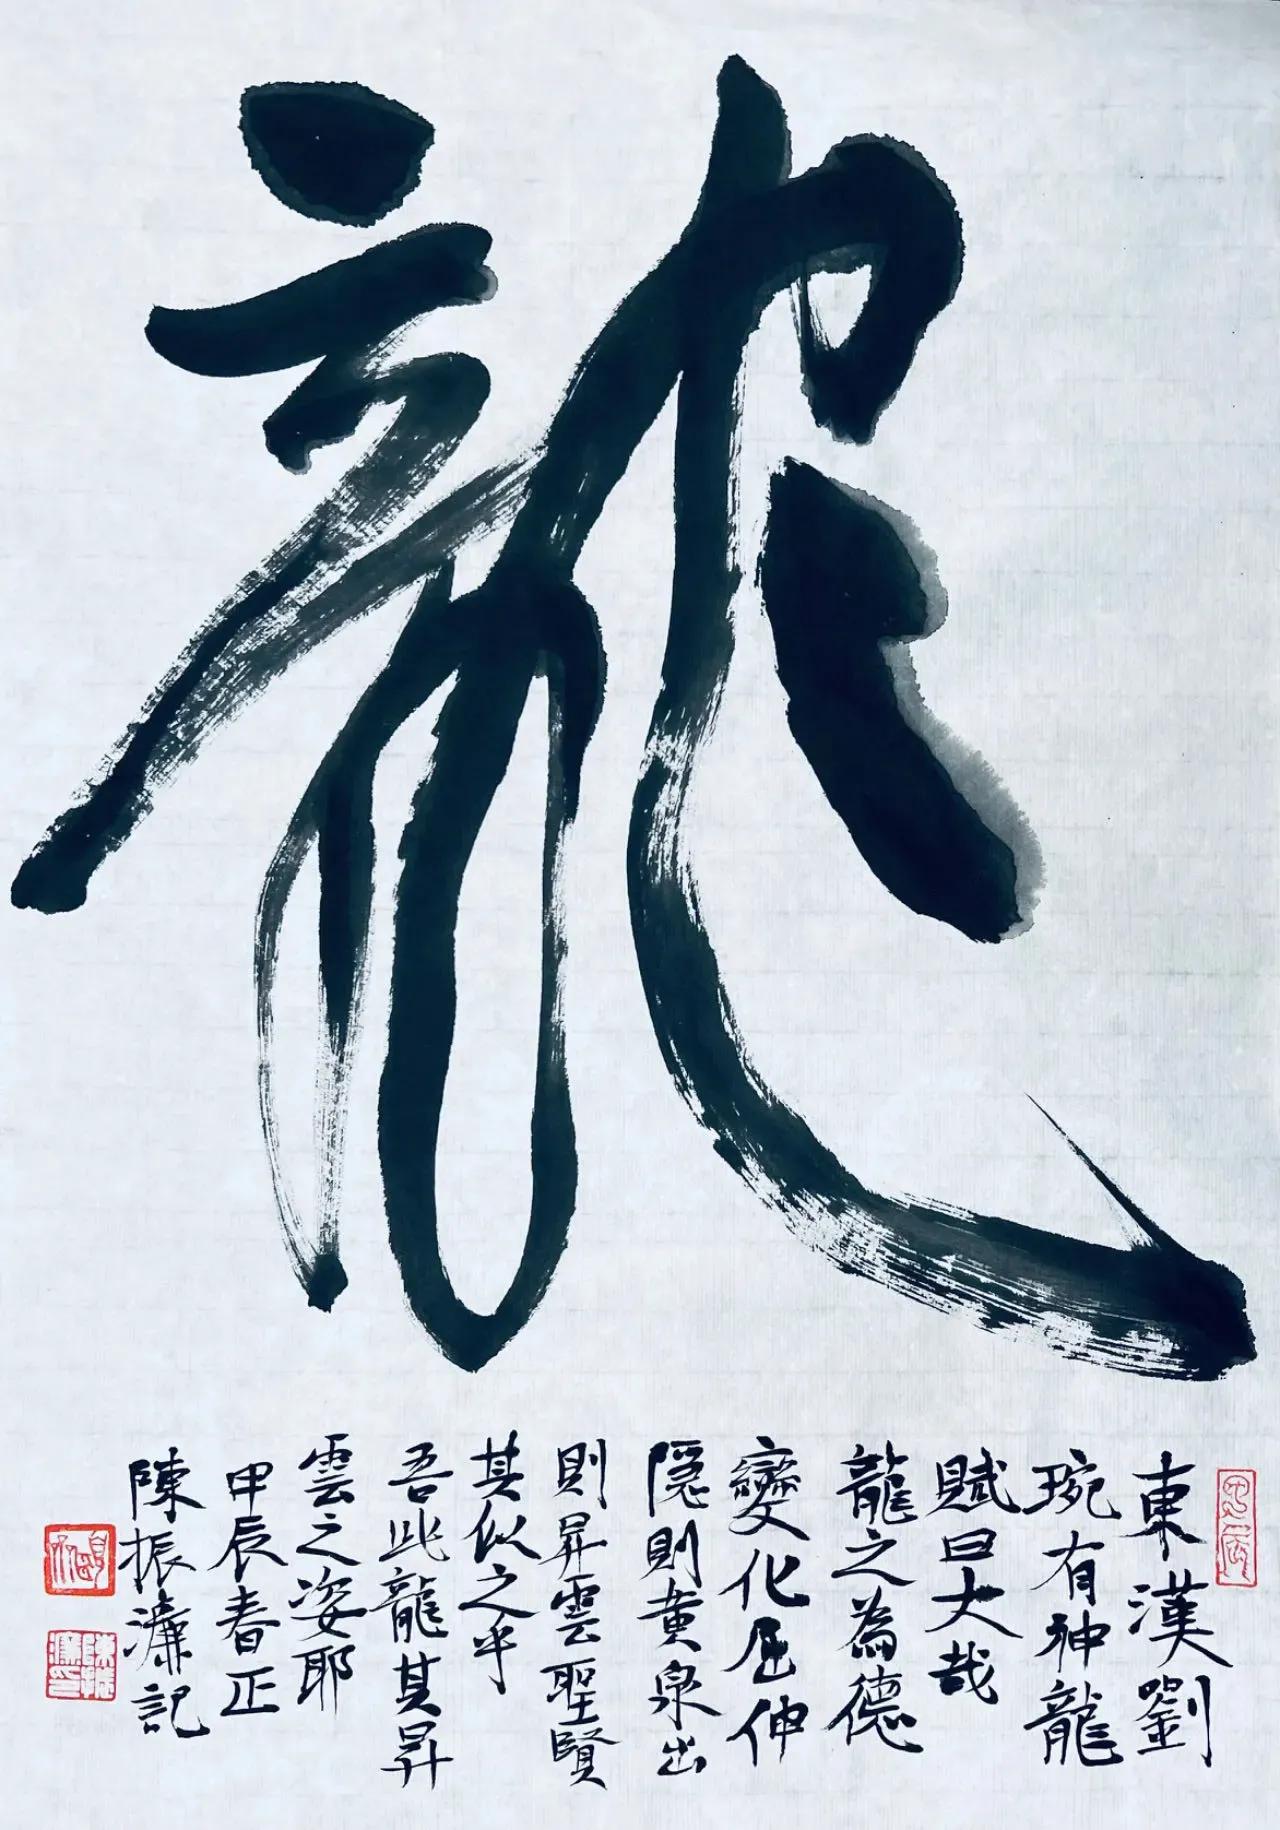 龍
東漢劉
琬有神龍
賦曰大哉
龍之為德
變化屈伸
隱則黄泉出
則昇雲聖賢
其似之乎
吾此龍其昇
雲之姿耶
甲辰春正
陳振濂記